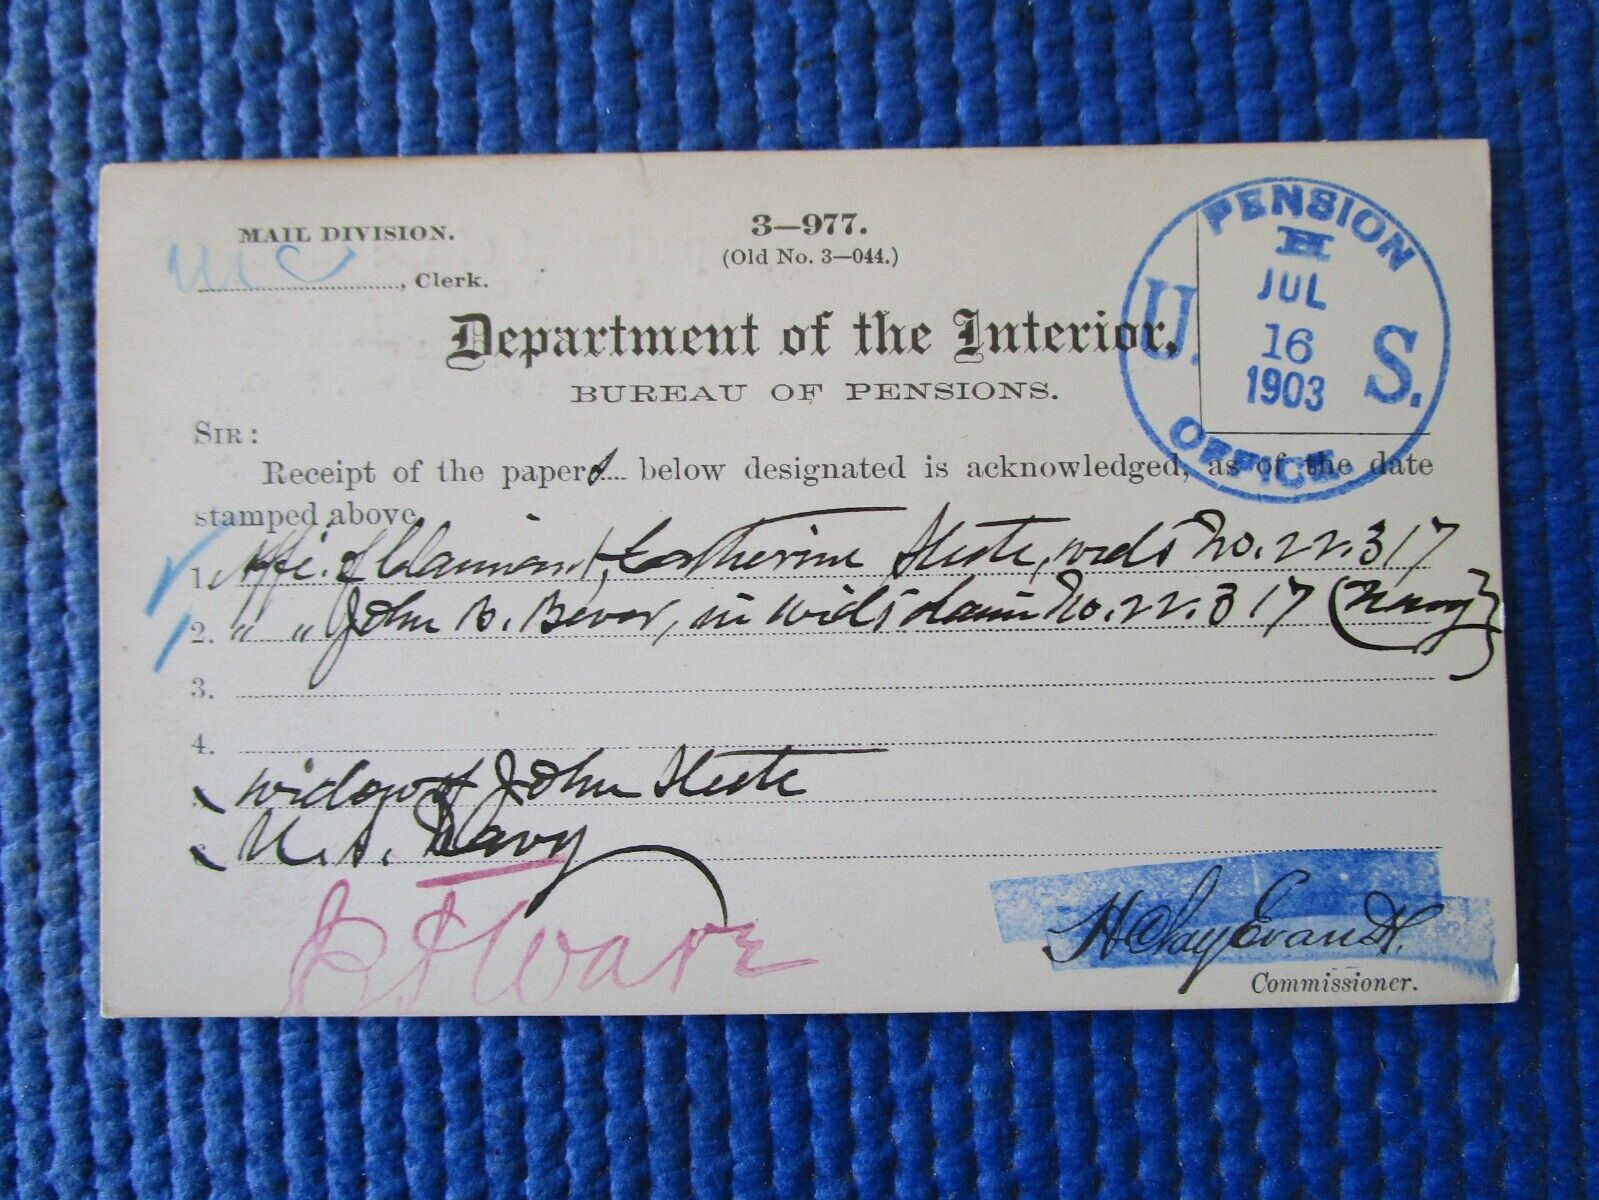 MAIL DIVISION.
........, Clerk.
3—977.
(Old No. 3—044.)
PENSION OFFICE
U. S.
H
JUL
16
1903
Department of the Interior,
BUREAU OF PENSIONS.
SIR:
Receipt of the papers below designated is acknowledged, as of the date
stamped above.
1. Affi. of Claimant, Catherine wid's No. 22.317
2. " " John B. in wid's claim No. 22.317 (Navy)
3.
4.
widow of John
U. S. Navy
H Clay Evans
Commissioner.